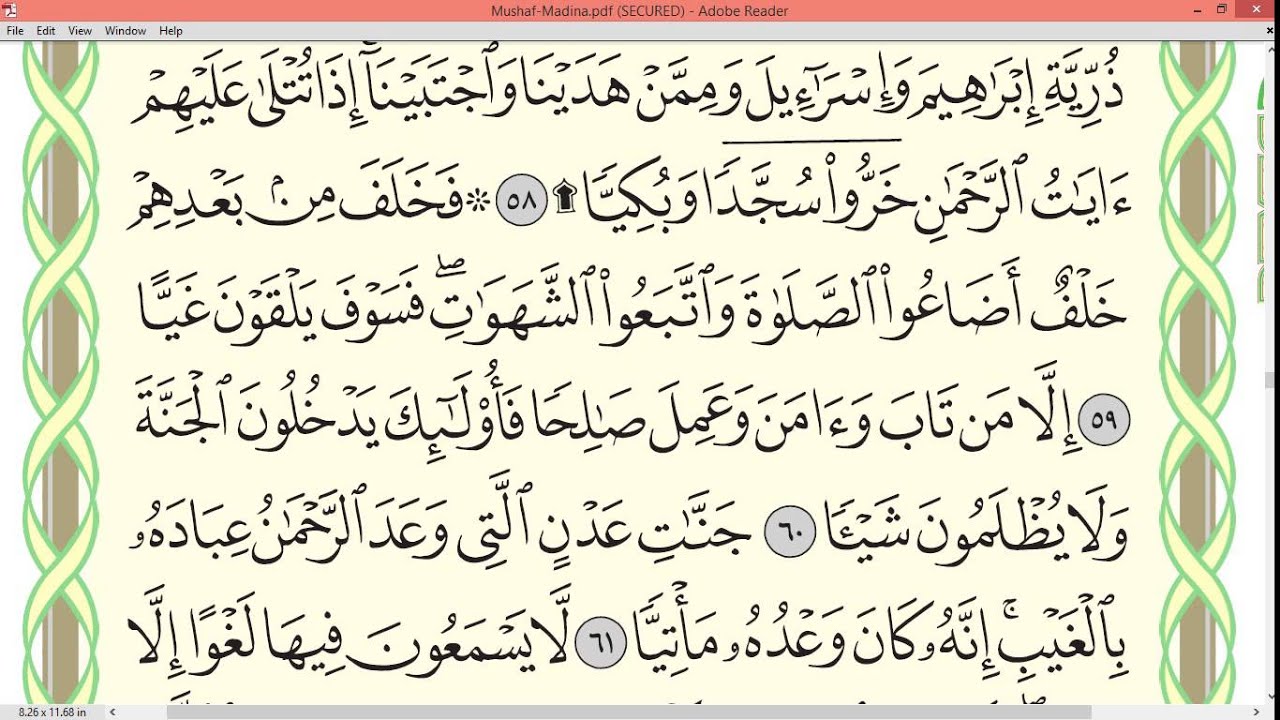 Mushaf-Madina.pdf (SECURED) - Adobe Reader
File Edit View Window Help
ذُرِّيَّةِ إِبۡرَٰهِيمَ وَإِسۡرَـٰٓءِيلَ وَمِمَّنۡ هَدَيۡنَا وَٱجۡتَبَيۡنَآۚ إِذَا تُتۡلَىٰ عَلَيۡهِمۡ
ءَايَـٰتُ ٱلرَّحۡمَـٰنِ خَرُّواْ سُجَّدٗا وَبُكِيّٗا ۩ ٥٨ ۞ فَخَلَفَ مِنۢ بَعۡدِهِمۡ
خَلۡفٌ أَضَاعُواْ ٱلصَّلَوٰةَ وَٱتَّبَعُواْ ٱلشَّهَوَٰتِۖ فَسَوۡفَ يَلۡقَوۡنَ غَيًّا
٥٩ إِلَّا مَن تَابَ وَءَامَنَ وَعَمِلَ صَـٰلِحٗا فَأُوْلَـٰٓئِكَ يَدۡخُلُونَ ٱلۡجَنَّةَ
وَلَا يُظۡلَمُونَ شَيۡـٔٗا ٦٠ جَنَّـٰتِ عَدۡنٍ ٱلَّتِي وَعَدَ ٱلرَّحۡمَـٰنُ عِبَادَهُۥ
بِٱلۡغَيۡبِۚ إِنَّهُۥ كَانَ وَعۡدُهُۥ مَأۡتِيّٗا ٦١ لَّا يَسۡمَعُونَ فِيهَا لَغۡوًا إِلَّا
8.26 x 11.68 in